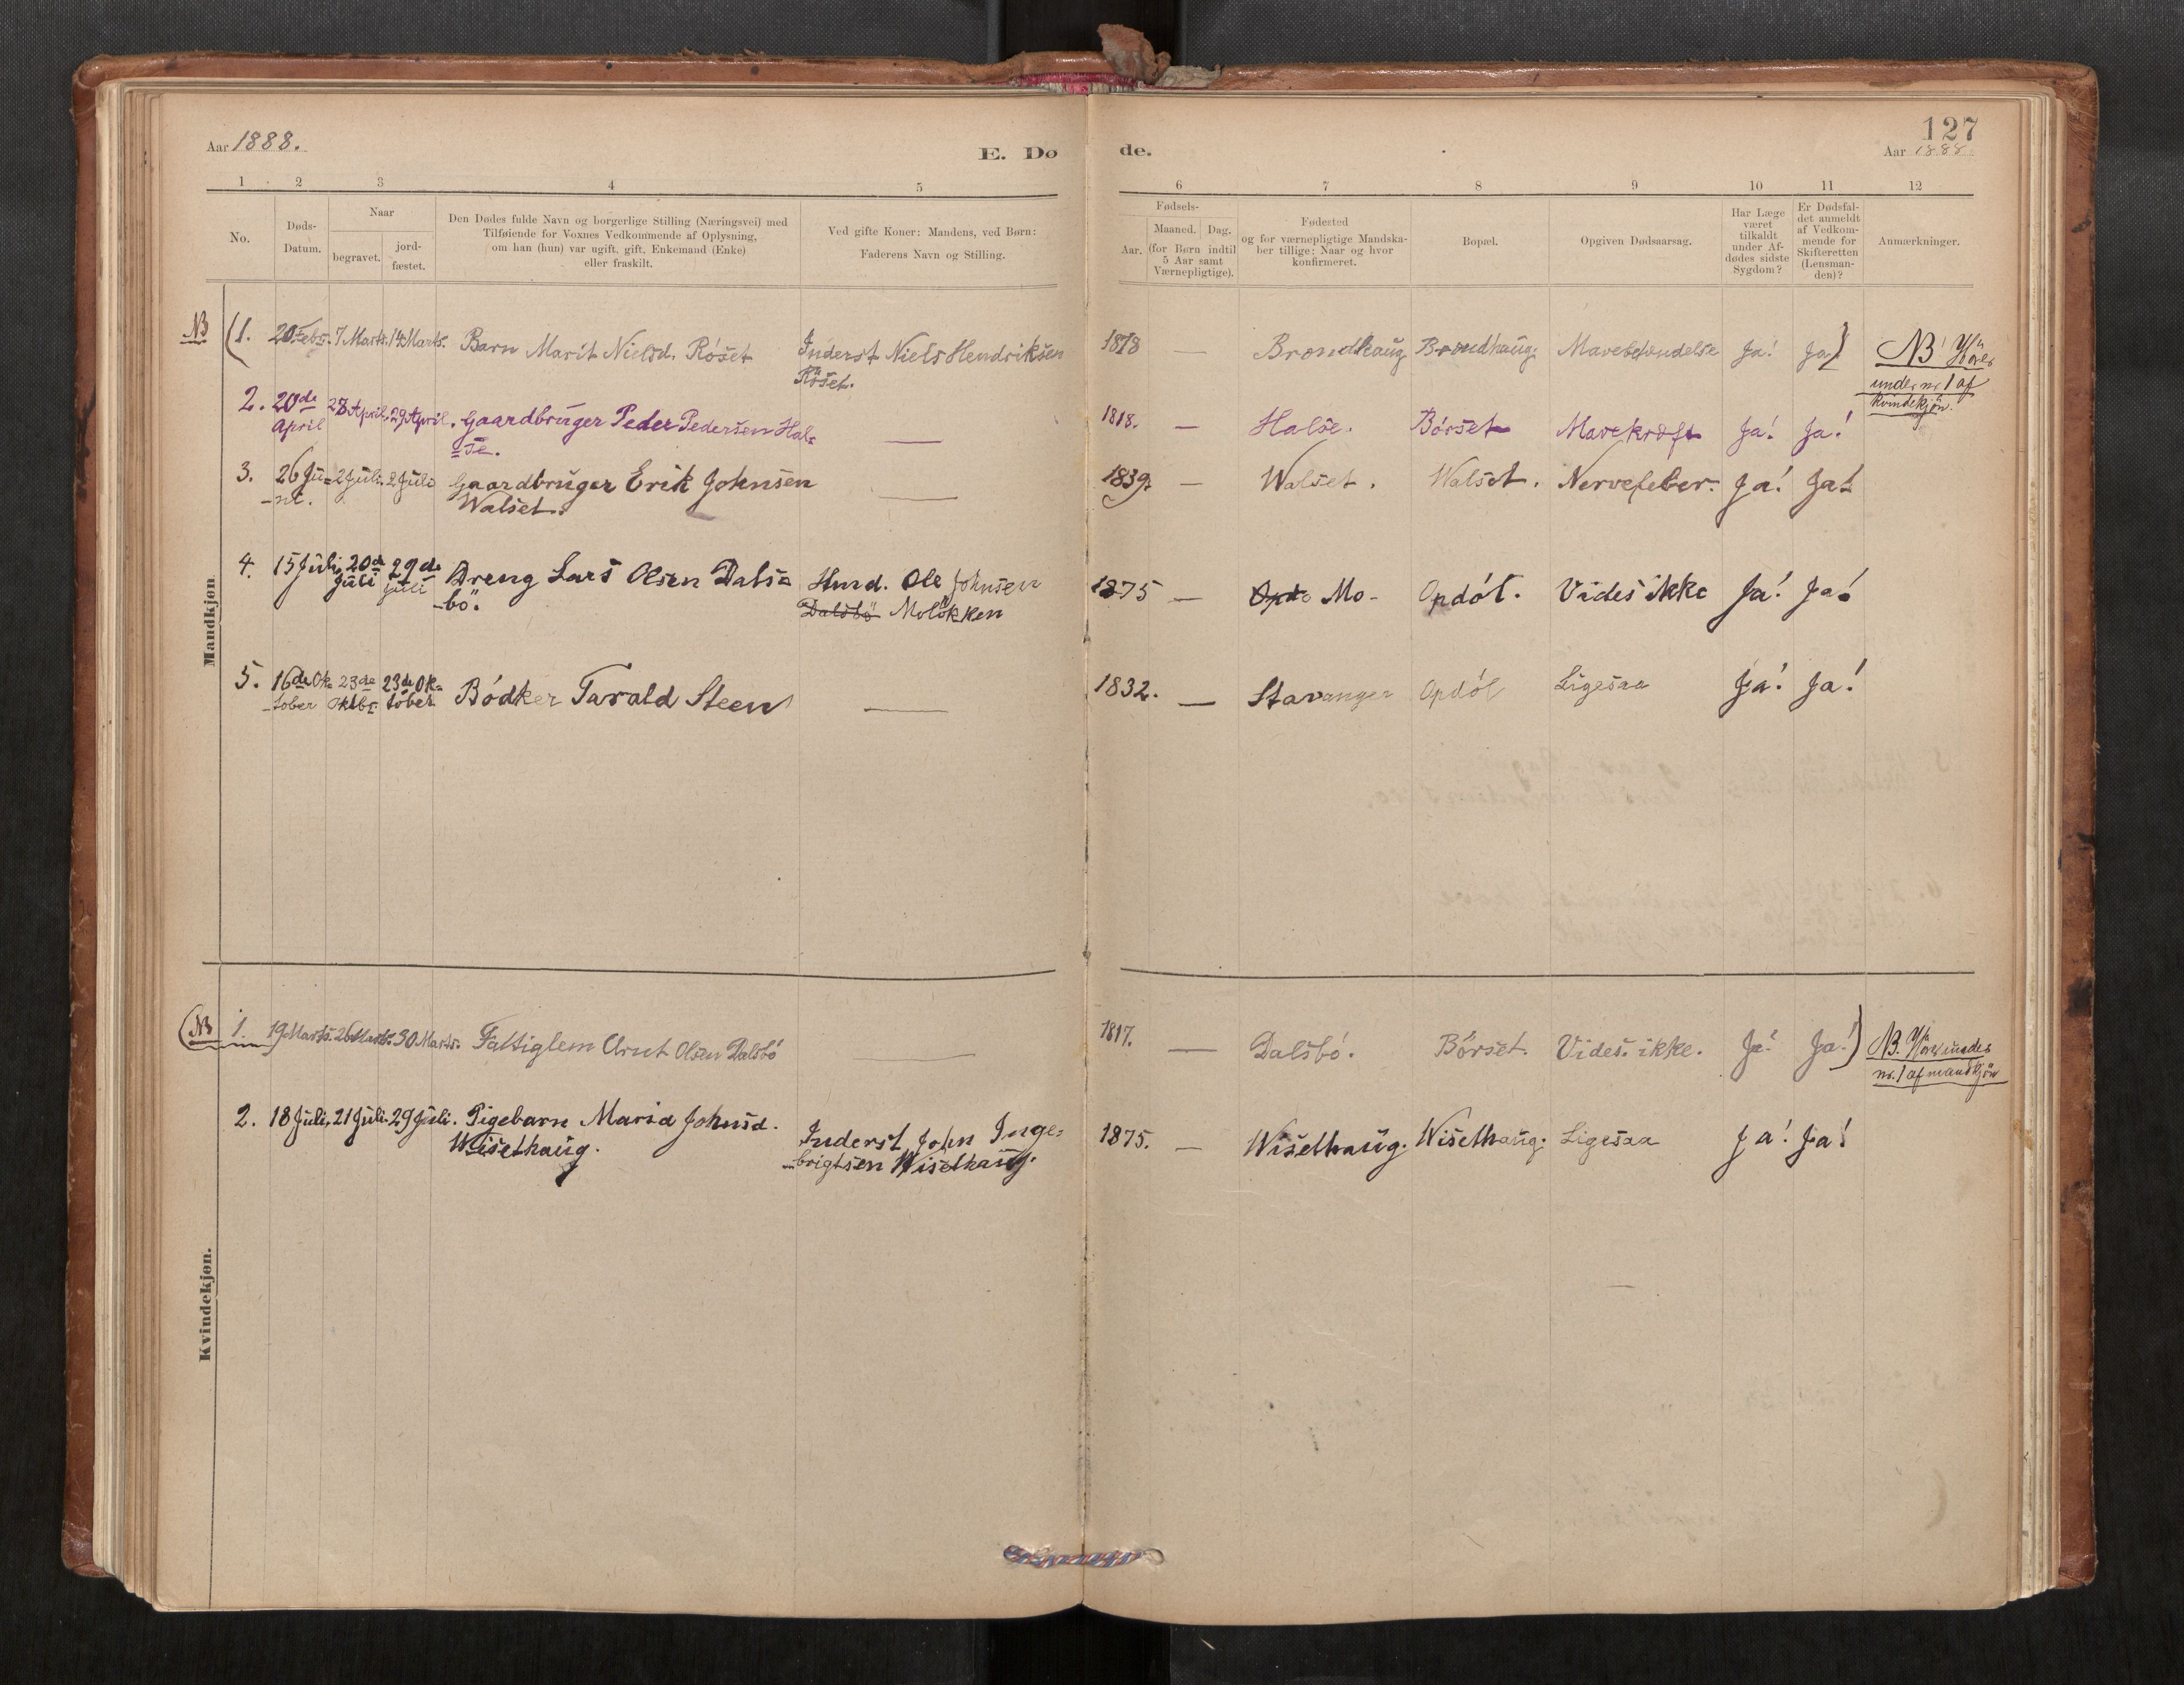 127
Aar 1888.
E. Døde.
Aar 1888
1 2 3 4 5 6 7 8 9 10 11 12
No.
Døds-
Datum.
Naar
begravet.
jord-
fæstet.
Den Dødes fulde Navn og borgerlige Stilling (Næringsvei) med
Tilføiende for Voxnes Vedkommende af Oplysning,
om han (hun) var ugift, gift, Enkemand (Enke)
eller fraskilt.
Ved gifte Koner: Mandens, ved Børn:
Faderens Navn og Stilling.
Fødsels-
Aar.
Maaned. Dag.
(for Børn indtil
5 Aar samt
Værnepligtige).
Fødested
og for værnepligtige Mandska-
ber tillige: Naar og hvor
konfirmeret.
Bopæl.
Opgiven Dødsaarsag.
Har Læge
været
tilkaldt
under Af-
dødes sidste
Sygdom?
Er Dødsfal-
det anmeldt
af Vedkom-
mende for
Skifteretten
(Lensman-
den)?
Anmærkninger.
Mandkjøn.
NB (1. 20 Febr. 7 Marts. 14 Marts. Barn Marit Nielsd. Röset Inderst Niels Hendriksen 1878 — Brøndhaug Brøndhaug. Mavebetændelse Ja! Ja) NB! Hörer
Röset.
under nr. 1 af
kvindekjön.
2. 20de 28 April. 29 April. Gaardbruger Peder Pedersen Hal= — 1818. — Halse. Börset Mavekræft Ja! Ja!
April
=se.
3. 26 Ju= 2 Juli. 2 Juli Gaardbruger Erik Johnsen — 1839. — Walset. Walset. Nervefeber. Ja! Ja!
-ni.
Walset.
4. 15 Juli, 20de 29de Dreng Lars Olsen Dals= Hmd. Ole Johnsen 1875 — Opd Mo- Opdöl. Vides ikke Ja! Ja!
Juli Juli
-bö.
Dalsbö Molökken
5. 16de Ok= 23de 23de Ok= Bödker Tarald Steen — 1832. — Stavanger Opdöl Ligesaa Ja! Ja!
-tober Oktbr. tober
Kvindekjøn.
(NB 1. 19 Marts. 26 Marts. 30 Marts. Fattiglem Arnt Olsen Dalsbö — 1817. — Dalsbö. Börset. Vides ikke. Ja! Ja!) NB. Hörer under
nr. 1 af mandkjön
2. 18 Juli, 21 Juli. 29 Juli. Pigebarn Marid Johnsd. Inderst John Inge= 1875. — Wisethaug. Wisethaug. Ligesaa Ja! Ja!
Wisethaug.
-brigtsen Wisethaug.